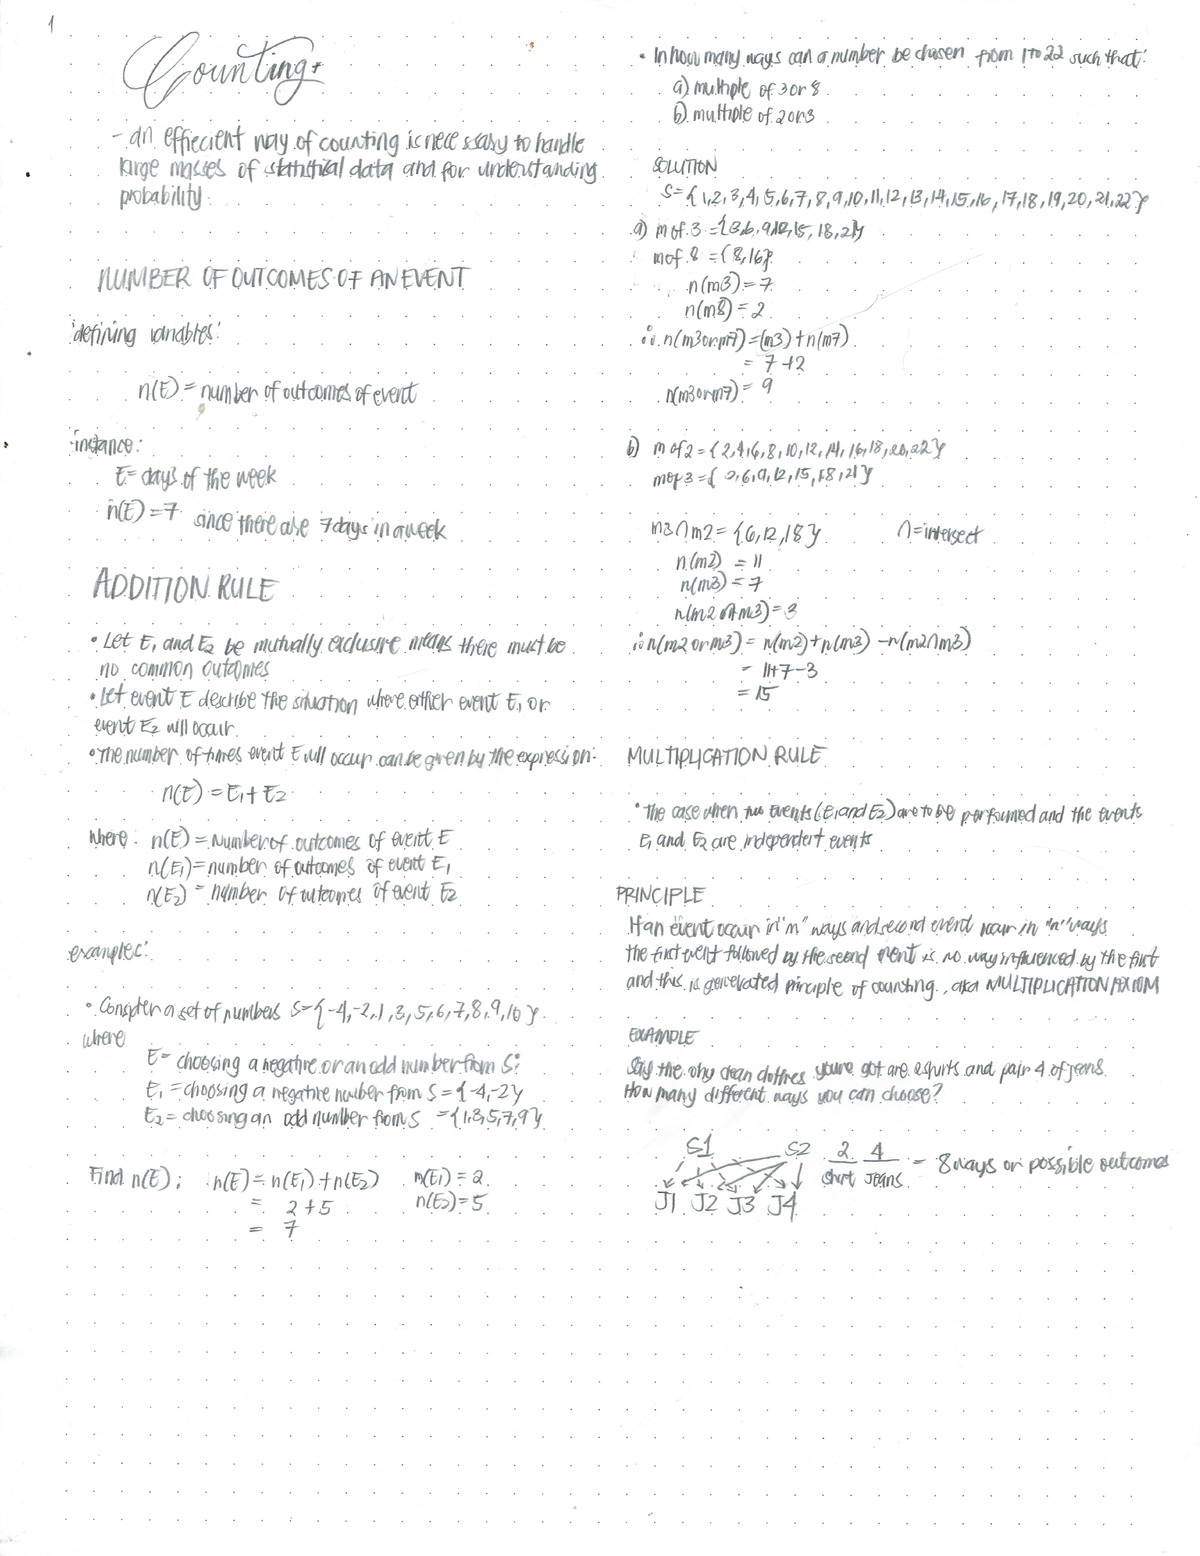 1
Counting
- an effiecient way of counting is necessasy to handle
large masses of statistical data and for understanding
probability.
NUMBER OF OUTCOMES OF AN EVENT
'defining variables'
n(E) = number of outcomes of event
instance:
E= days of the week
n(E) = 7 since there are 7 days in a week
ADDITION RULE
• Let E1 and E2 be mutually exclusive means there must be
no common outcomes
• Let event E describe the situation where either event E1 or
event E2 will occur.
• The number of times event E will occur can be given by the expression:
n(E) = E1 + E2
where: n(E) = Number of outcomes of event E
n(E1) = number of outcomes of event E1
n(E2) = number of outcomes of event E2
examples:
• Consider a set of numbers S={-4,-2,1,3,5,6,7,8,9,10}
where
E= choosing a negative or an odd number from S:
E1 = choosing a negative number from S = {-4,-2}
E2 = choosing an odd number from S = {1,3,5,7,9}
Find n(E); n(E) = n(E1) + n(E2) n(E1) = 2
= 2+5 n(E2)=5
= 7
• In how many ways can a number be chosen from 1 to 22 such that:
a) multiple of 3 or 8
b) multiple of 2 or 3
SOLUTION
S= {1,2,3,4,5,6,7,8,9,10,11,12,13,14,15,16,17,18,19,20,21,22}
a) m of 3 = {3,6,9,12,15,18,21}
m of 8 = {8,16}
n(m3) = 7
n(m8) = 2
∴ n(m3 or m7) = (m3) + n(m7)
= 7+2
n(m3 or m7) = 9
b) m of 2 = {2,4,6,8,10,12,14,16,18,20,22}
m of 3 = { 3,6,9,12,15,18,21}
m3∩m2 = {6,12,18} ∩=intersect
n(m2) = 11
n(m3) = 7
n(m2 m3) = 3
∴ n(m2 or m3) = n(m2) + n(m3) - n(m2∩m3)
= 11+7-3
= 15
MULTIPLICATION RULE
• The case when two events (E1 and E2) are to be performed and the events
E1 and E2 are independent events
PRINCIPLE
If an event occur in "m" ways and second event occur in "n" ways
the first event followed by the second event is no way influenced by the first
and this is generated principle of counting., aka MULTIPLICATION AXIOM
EXAMPLE
Say the only clean clothes youre got are 2 shirts and pair 4 of jeans.
How many different ways you can choose?
S1 S2 2 4 = 8 ways or possible outcomes
shirt Jeans
J1 J2 J3 J4